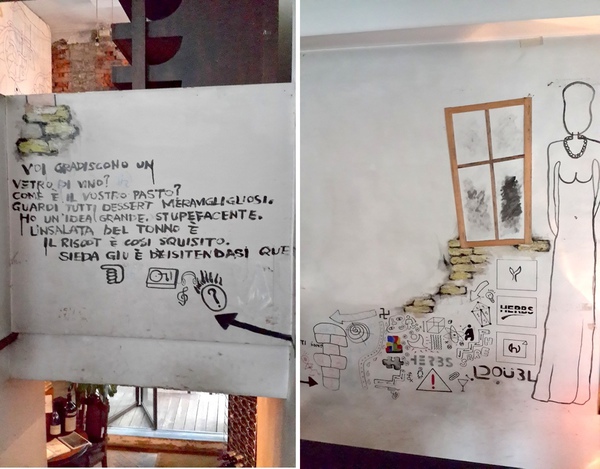 VOI GRADISCONO UN
VETRO DI VINO?
COME E IL VOSTRO PASTO?
GUARDI TUTTI DESSERT MERAVIGLIGIOSI.
HO UN'IDEA GRANDE. STUPEFACENTE.
L'INSALATA DEL TONNO È
IL RISOOT È COSI SQUISITO.
SIEDA GIU È DEISITENDASI QUE
?
HERBS
HERBS
!